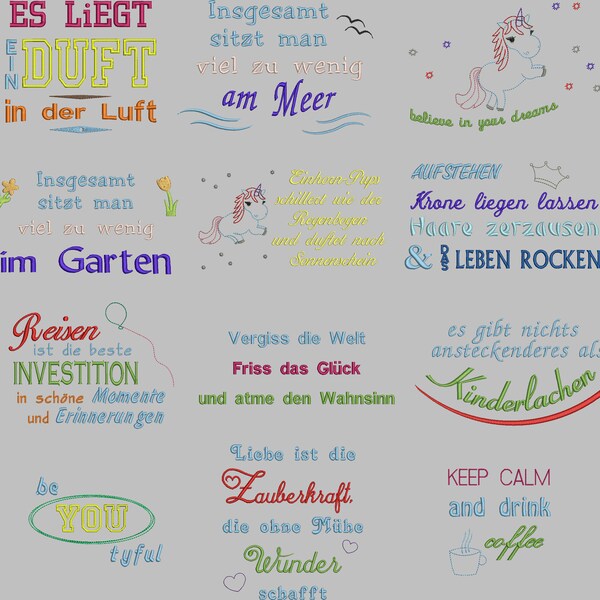 ES LiEGT
EIN
DUFT
in der Luft
Insgesamt
sitzt man
viel zu wenig
am Meer
believe in your dreams
Insgesamt
sitzt man
viel zu wenig
im Garten
Einhorn-Pups
schillert wie der
Regenbogen
und duftet nach
Sonnenschein
AUFSTEHEN
Krone liegen lassen
Haare zerzausen
& DAS LEBEN ROCKEN
Reisen
ist die beste
INVESTITION
in schöne Momente
und Erinnerungen
Vergiss die Welt
Friss das Glück
und atme den Wahnsinn
es gibt nichts
ansteckenderes als
Kinderlachen
be
YOU
tyful
Liebe ist die
Zauberkraft,
die ohne Mühe
Wunder
schafft
KEEP CALM
and drink
coffee